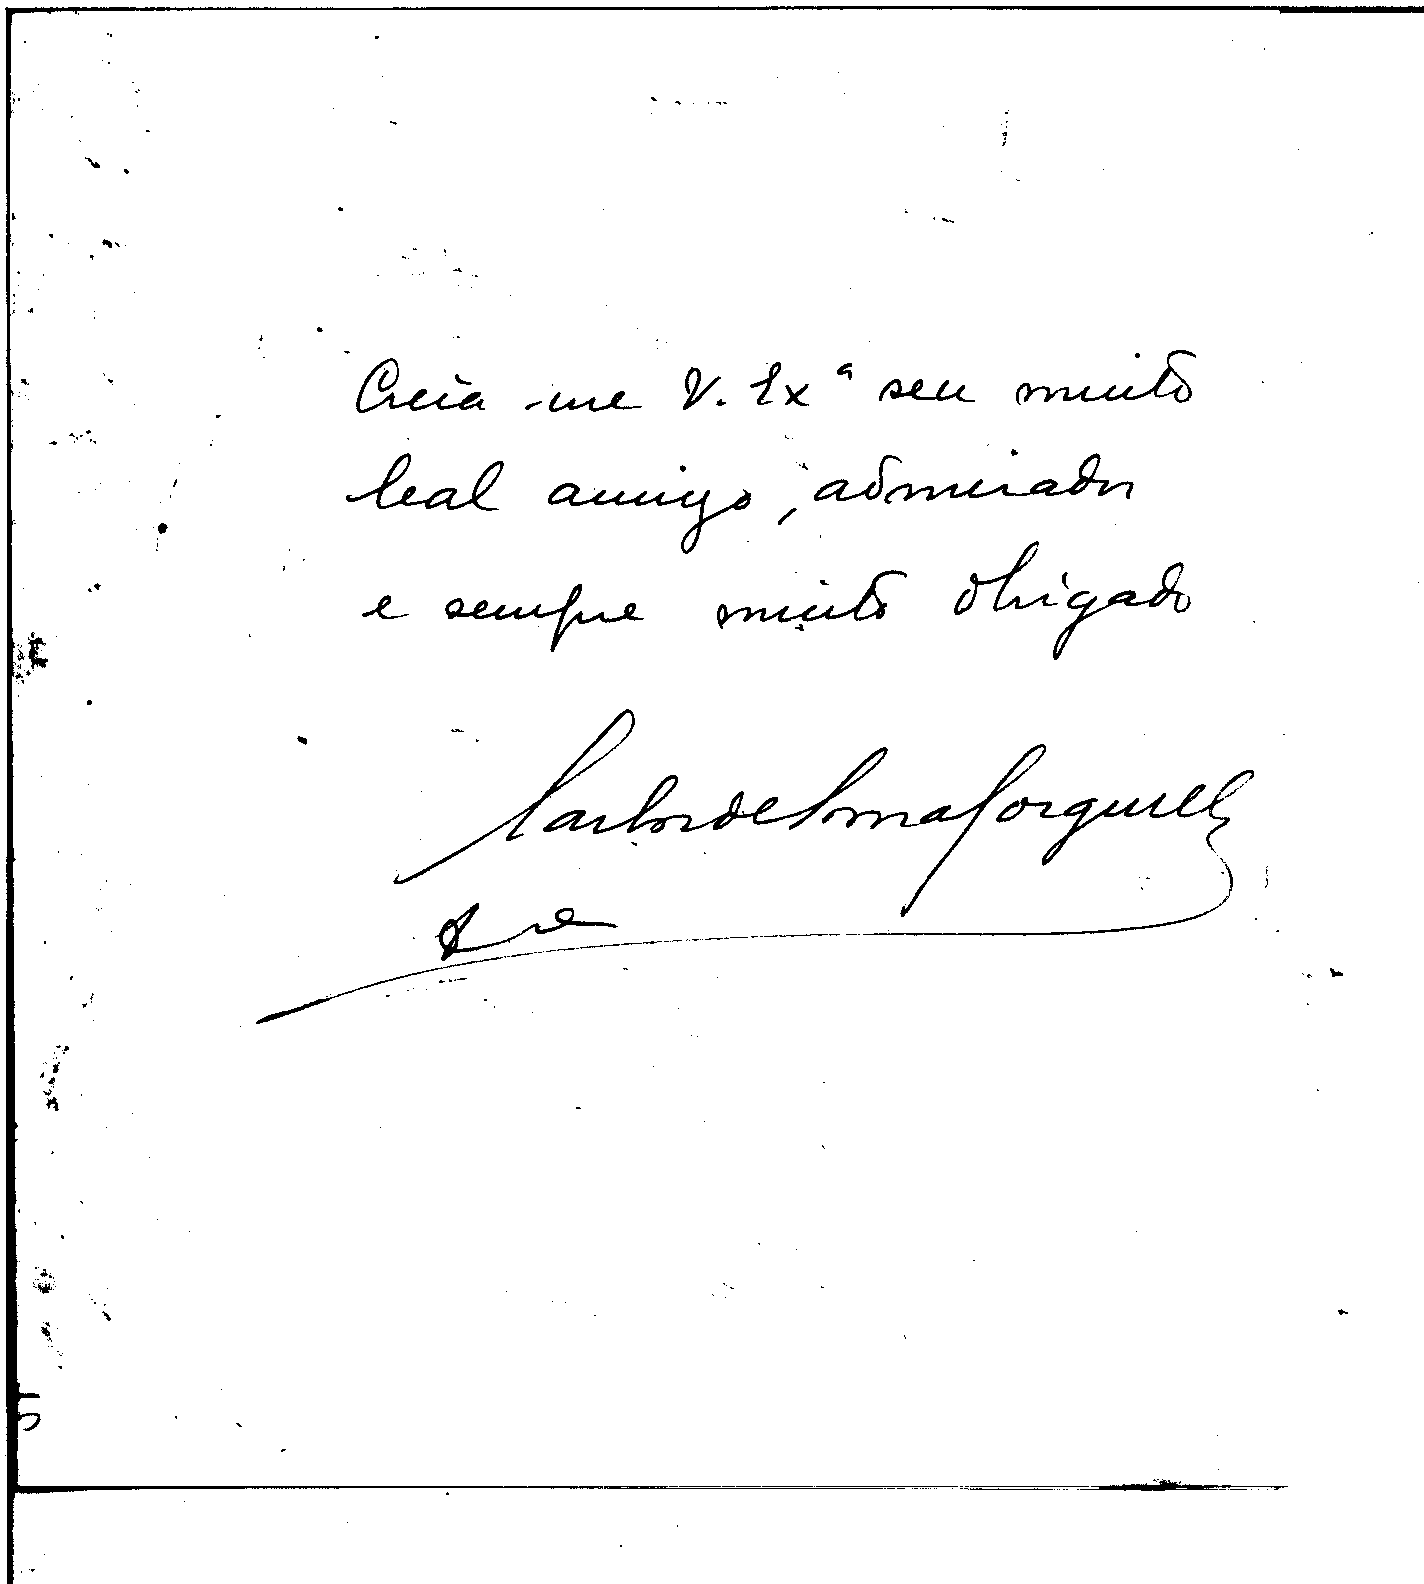 Creia-me V. Exª seu muito
leal amigo, admirador
e sempre muito obrigado
Carlos de